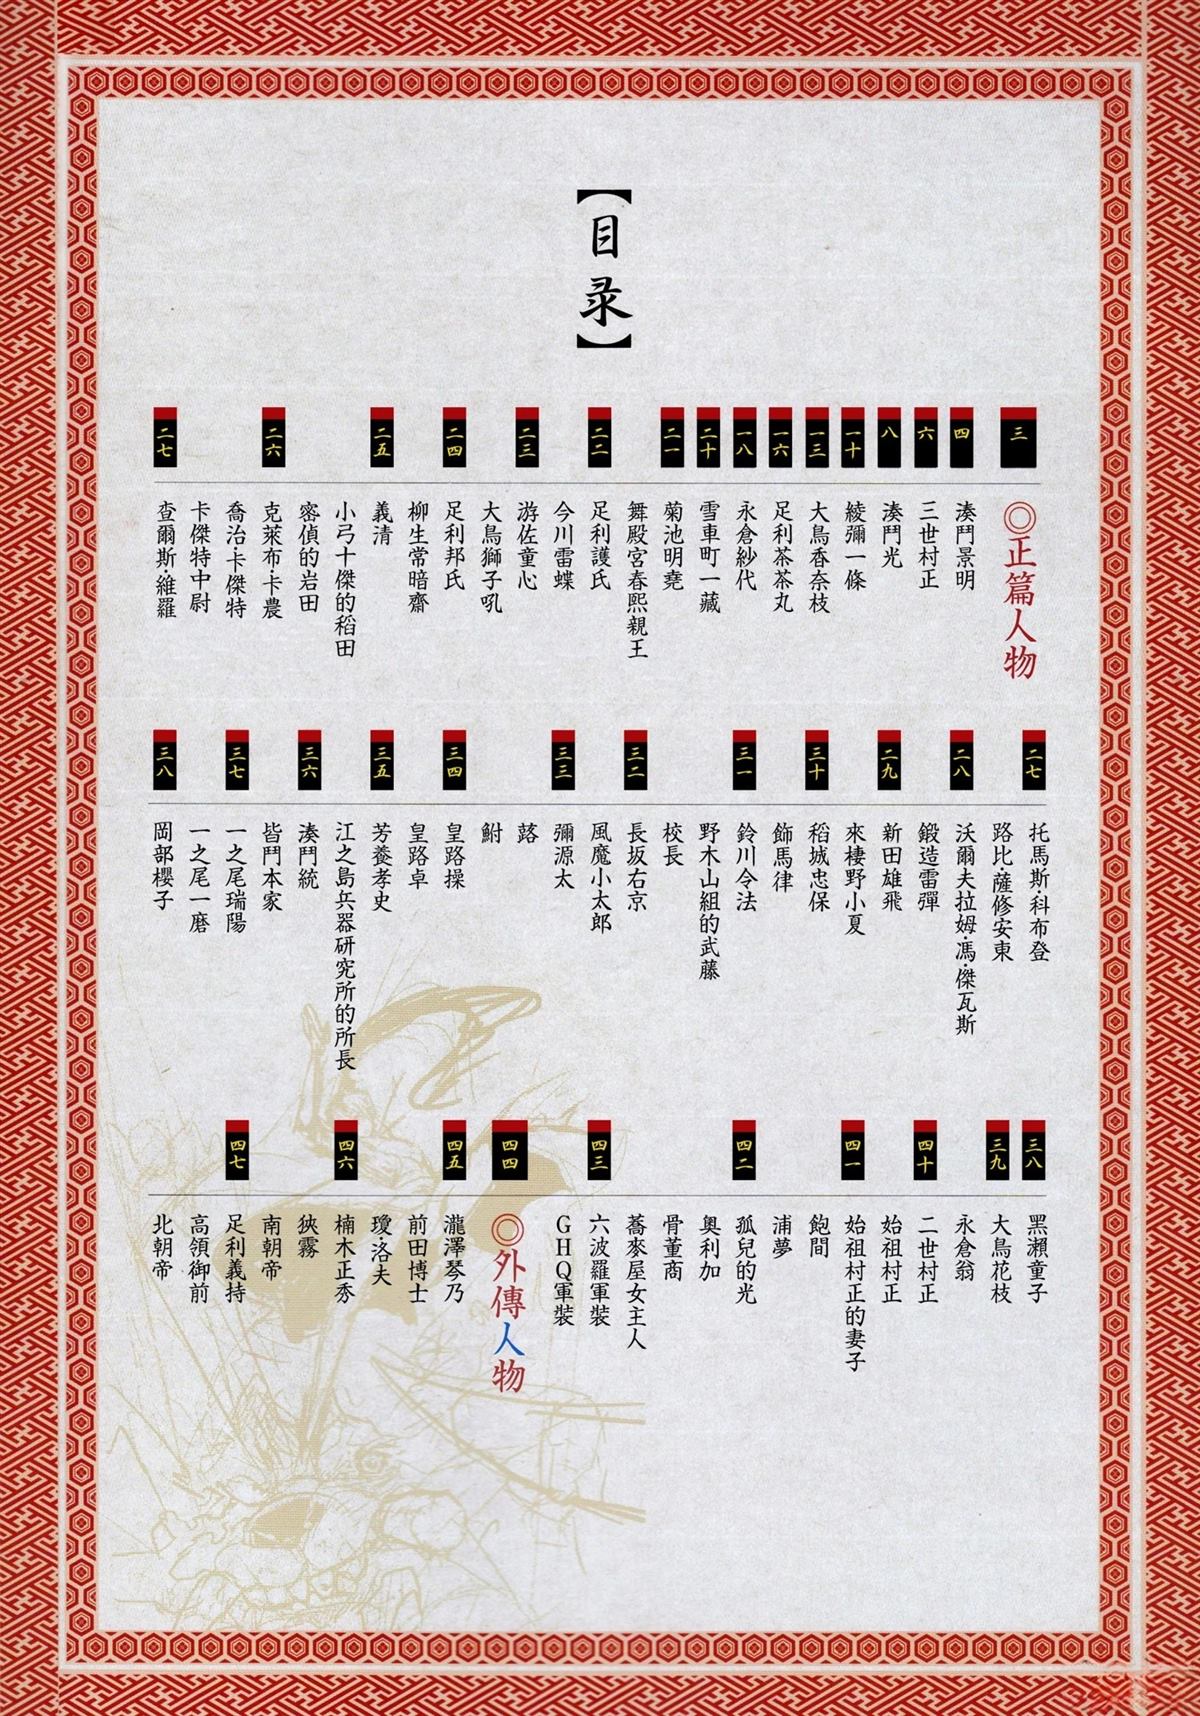 【目录】
三
◎正篇人物
四
湊鬥景明
六
三世村正
八
湊鬥光
一十
綾彌一條
一三
大鳥香奈枝
一六
足利茶茶丸
一八
永倉紗代
二十
雪車町一藏
二一
菊池明堯
舞殿宮春熙親王
二二
足利護氏
今川雷蝶
二三
游佐童心
大鳥獅子吼
二四
足利邦氏
柳生常暗齋
二五
義清
小弓十傑的稻田
密偵的岩田
二六
克萊布·卡農
喬治卡傑特
卡傑特中尉
二七
查爾斯·維羅
二七
托馬斯·科布登
路比·薩修安東
二八
沃爾夫拉姆·馮·傑瓦斯
鍛造雷彈
二九
新田雄飛
來棲野小夏
三十
稻城忠保
飾馬律
三一
鈴川令法
野木山組的武藤
校長
三二
長坂右京
風魔小太郎
三三
彌源太
蕗
鮒
三四
皇路操
皇路卓
三五
芳養孝史
江之島兵器研究所的所長
三六
湊鬥統
皆鬥本家
三七
一之尾瑞陽
一之尾一磨
三八
岡部櫻子
三八
黑瀨童子
三九
大鳥花枝
永倉翁
四十
二世村正
始祖村正
四一
始祖村正的妻子
飽間
浦夢
四二
孤兒的光
奧利加
骨董商
蕎麥屋女主人
四三
六波羅軍裝
GHQ軍裝
四四
◎外傳人物
四五
瀧澤琴乃
前田博士
瓊·洛夫
四六
楠木正秀
狹霧
南朝帝
四七
足利義持
高領御前
北朝帝